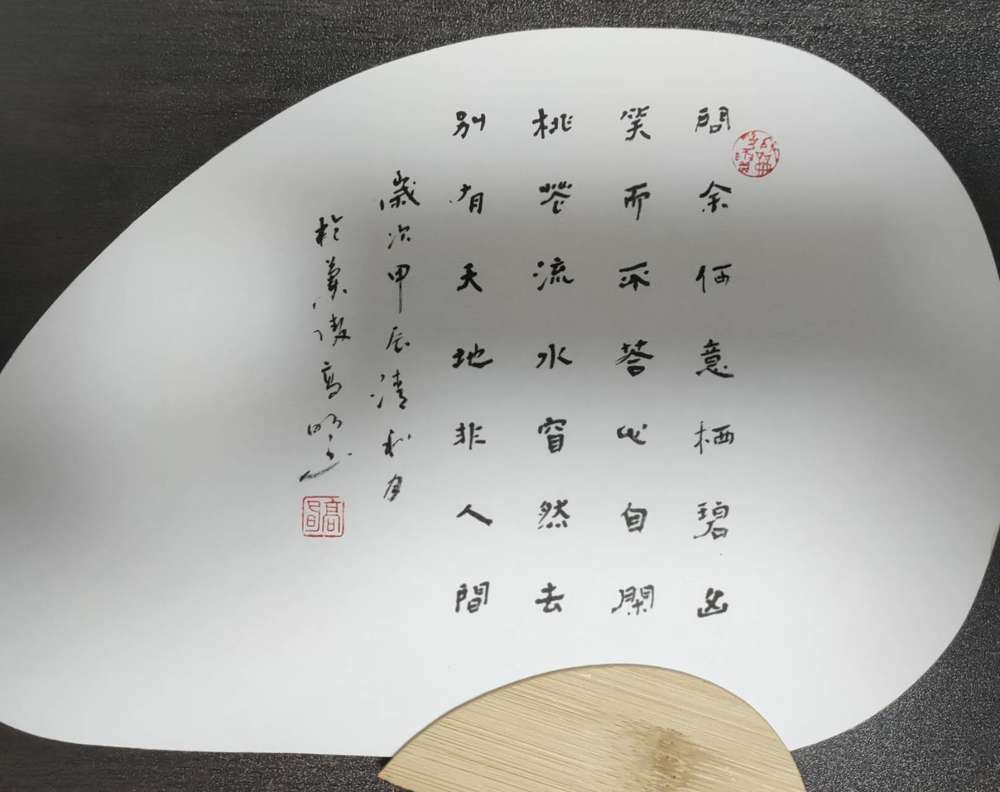 問余何意栖碧山
笑而不答心自閑
桃花流水窅然去
別有天地非人間
歲次甲辰清和月
於 高